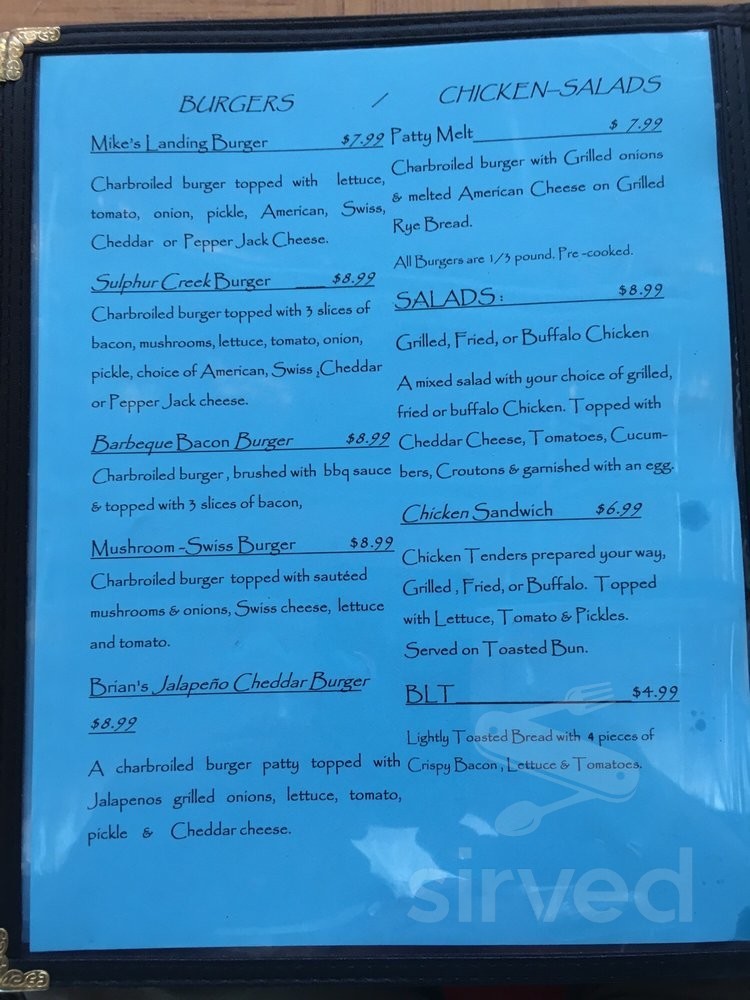 BURGERS / CHICKEN-SALADS
Mike's Landing Burger $7.99
Charbroiled burger topped with lettuce,
tomato, onion, pickle, American, Swiss,
Cheddar or Pepper Jack Cheese.
Sulphur Creek Burger $8.99
Charbroiled burger topped with 3 slices of
bacon, mushrooms, lettuce, tomato, onion,
pickle, choice of American, Swiss ,Cheddar
or Pepper Jack cheese.
Barbeque Bacon Burger $8.99
Charbroiled burger , brushed with bbq sauce
& topped with 3 slices of bacon,
Mushroom -Swiss Burger $8.99
Charbroiled burger topped with sautéed
mushrooms & onions, Swiss cheese, lettuce
and tomato.
Brian's Jalapeño Cheddar Burger
$8.99
A charbroiled burger patty topped with
Jalapenos grilled onions, lettuce, tomato,
pickle & Cheddar cheese.
Patty Melt $ 7.99
Charbroiled burger with Grilled onions
& melted American Cheese on Grilled
Rye Bread.
All Burgers are 1/3 pound. Pre-cooked.
SALADS: $8.99
Grilled, Fried, or Buffalo Chicken
A mixed salad with your choice of grilled,
fried or buffalo Chicken. Topped with
Cheddar Cheese, Tomatoes, Cucum-
bers, Croutons & garnished with an egg.
Chicken Sandwich $6.99
Chicken Tenders prepared your way,
Grilled , Fried, or Buffalo. Topped
with Lettuce, Tomato & Pickles.
Served on Toasted Bun.
BLT $4.99
Lightly Toasted Bread with 4 pieces of
Crispy Bacon , Lettuce & Tomatoes.
sirved